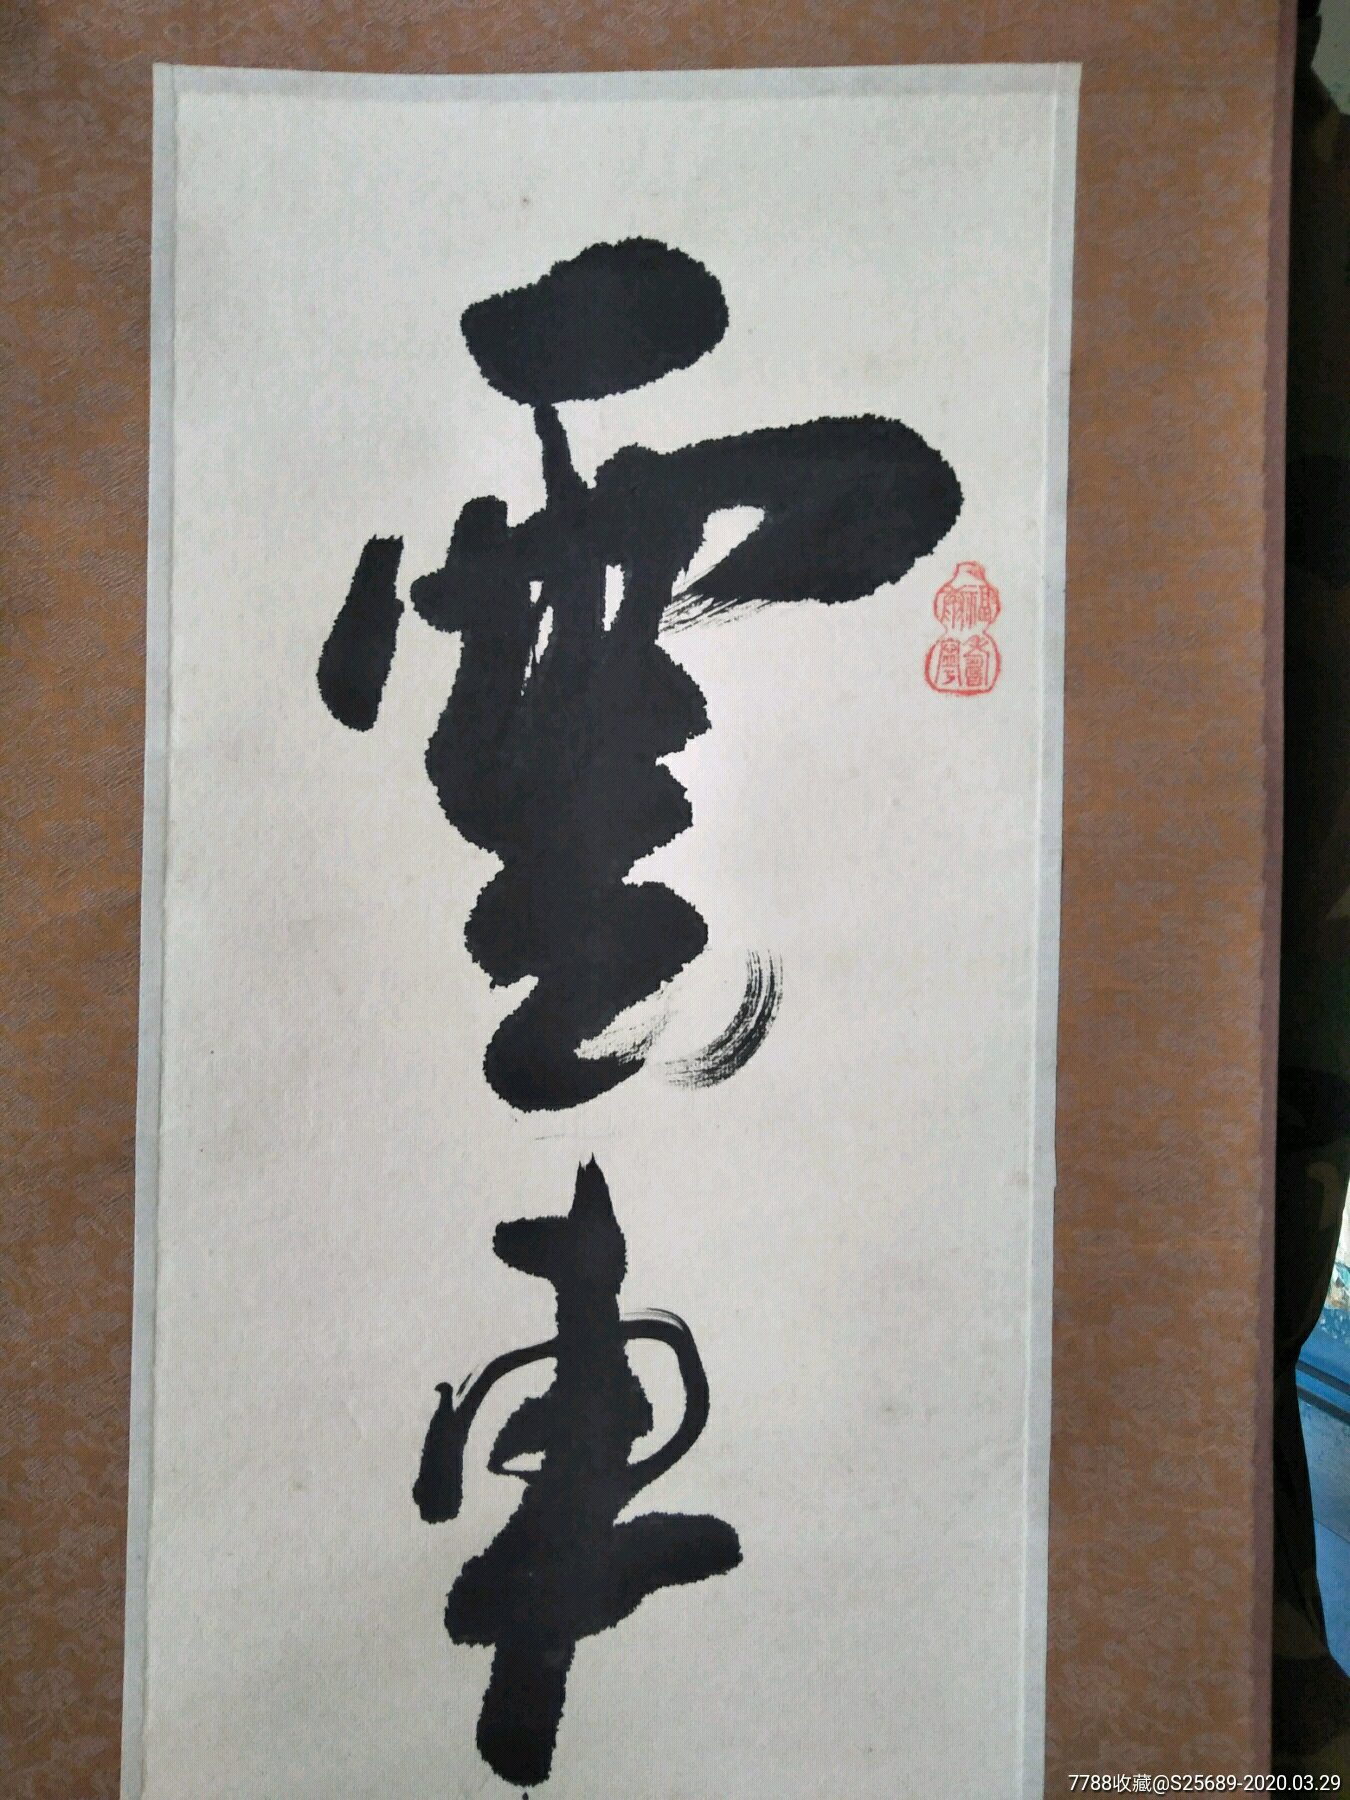 雲車
7788收藏@S25689-2020.03.29